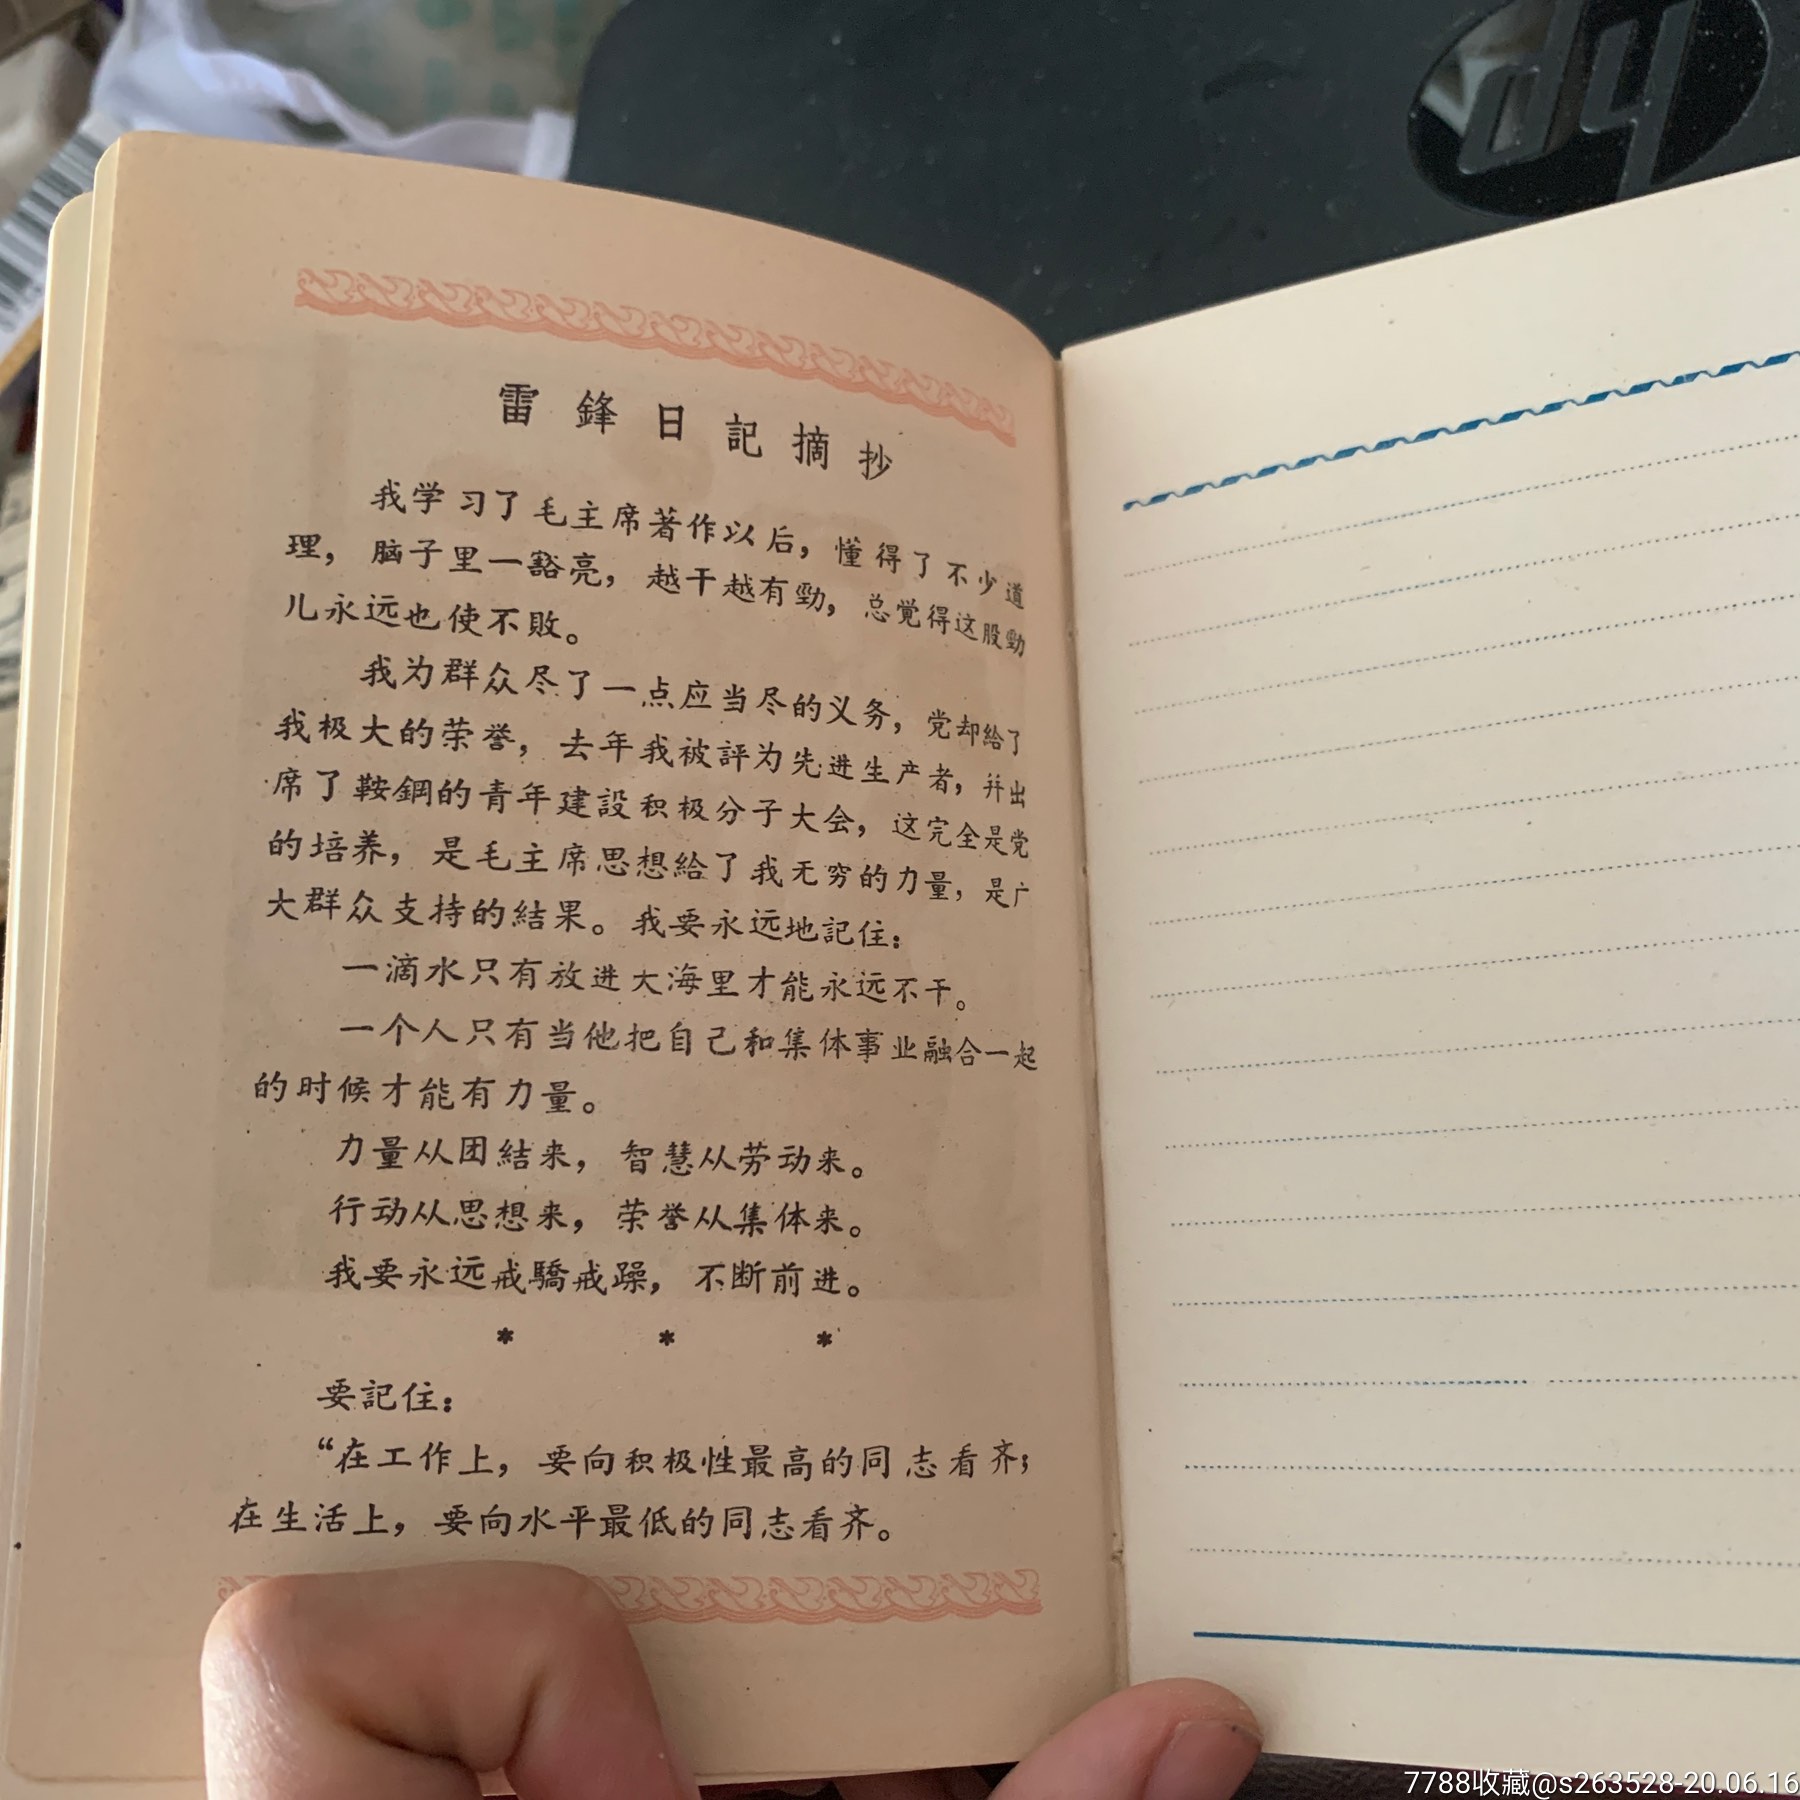 hp
雷鋒日記摘抄
我学习了毛主席著作以后，懂得了不少道
理，脑子里一豁亮，越干越有勁，总觉得这股勁
儿永远也使不敗。
我为群众尽了一点应当尽的义务，党却給了
我极大的荣誉，去年我被評为先进生产者，幷出
席了鞍鋼的青年建設积极分子大会，这完全是党
的培养，是毛主席思想給了我无穷的力量，是广
大群众支持的結果。我要永远地記住：
一滴水只有放进大海里才能永远不干。
一个人只有当他把自己和集体事业融合一起
的时候才能有力量。
力量从团結来，智慧从劳动来。
行动从思想来，荣誉从集体来。
我要永远戒驕戒躁，不断前进。
* * *
要記住：
“在工作上，要向积极性最高的同志看齐；
在生活上，要向水平最低的同志看齐。
7788收藏@s263528-20.06.16